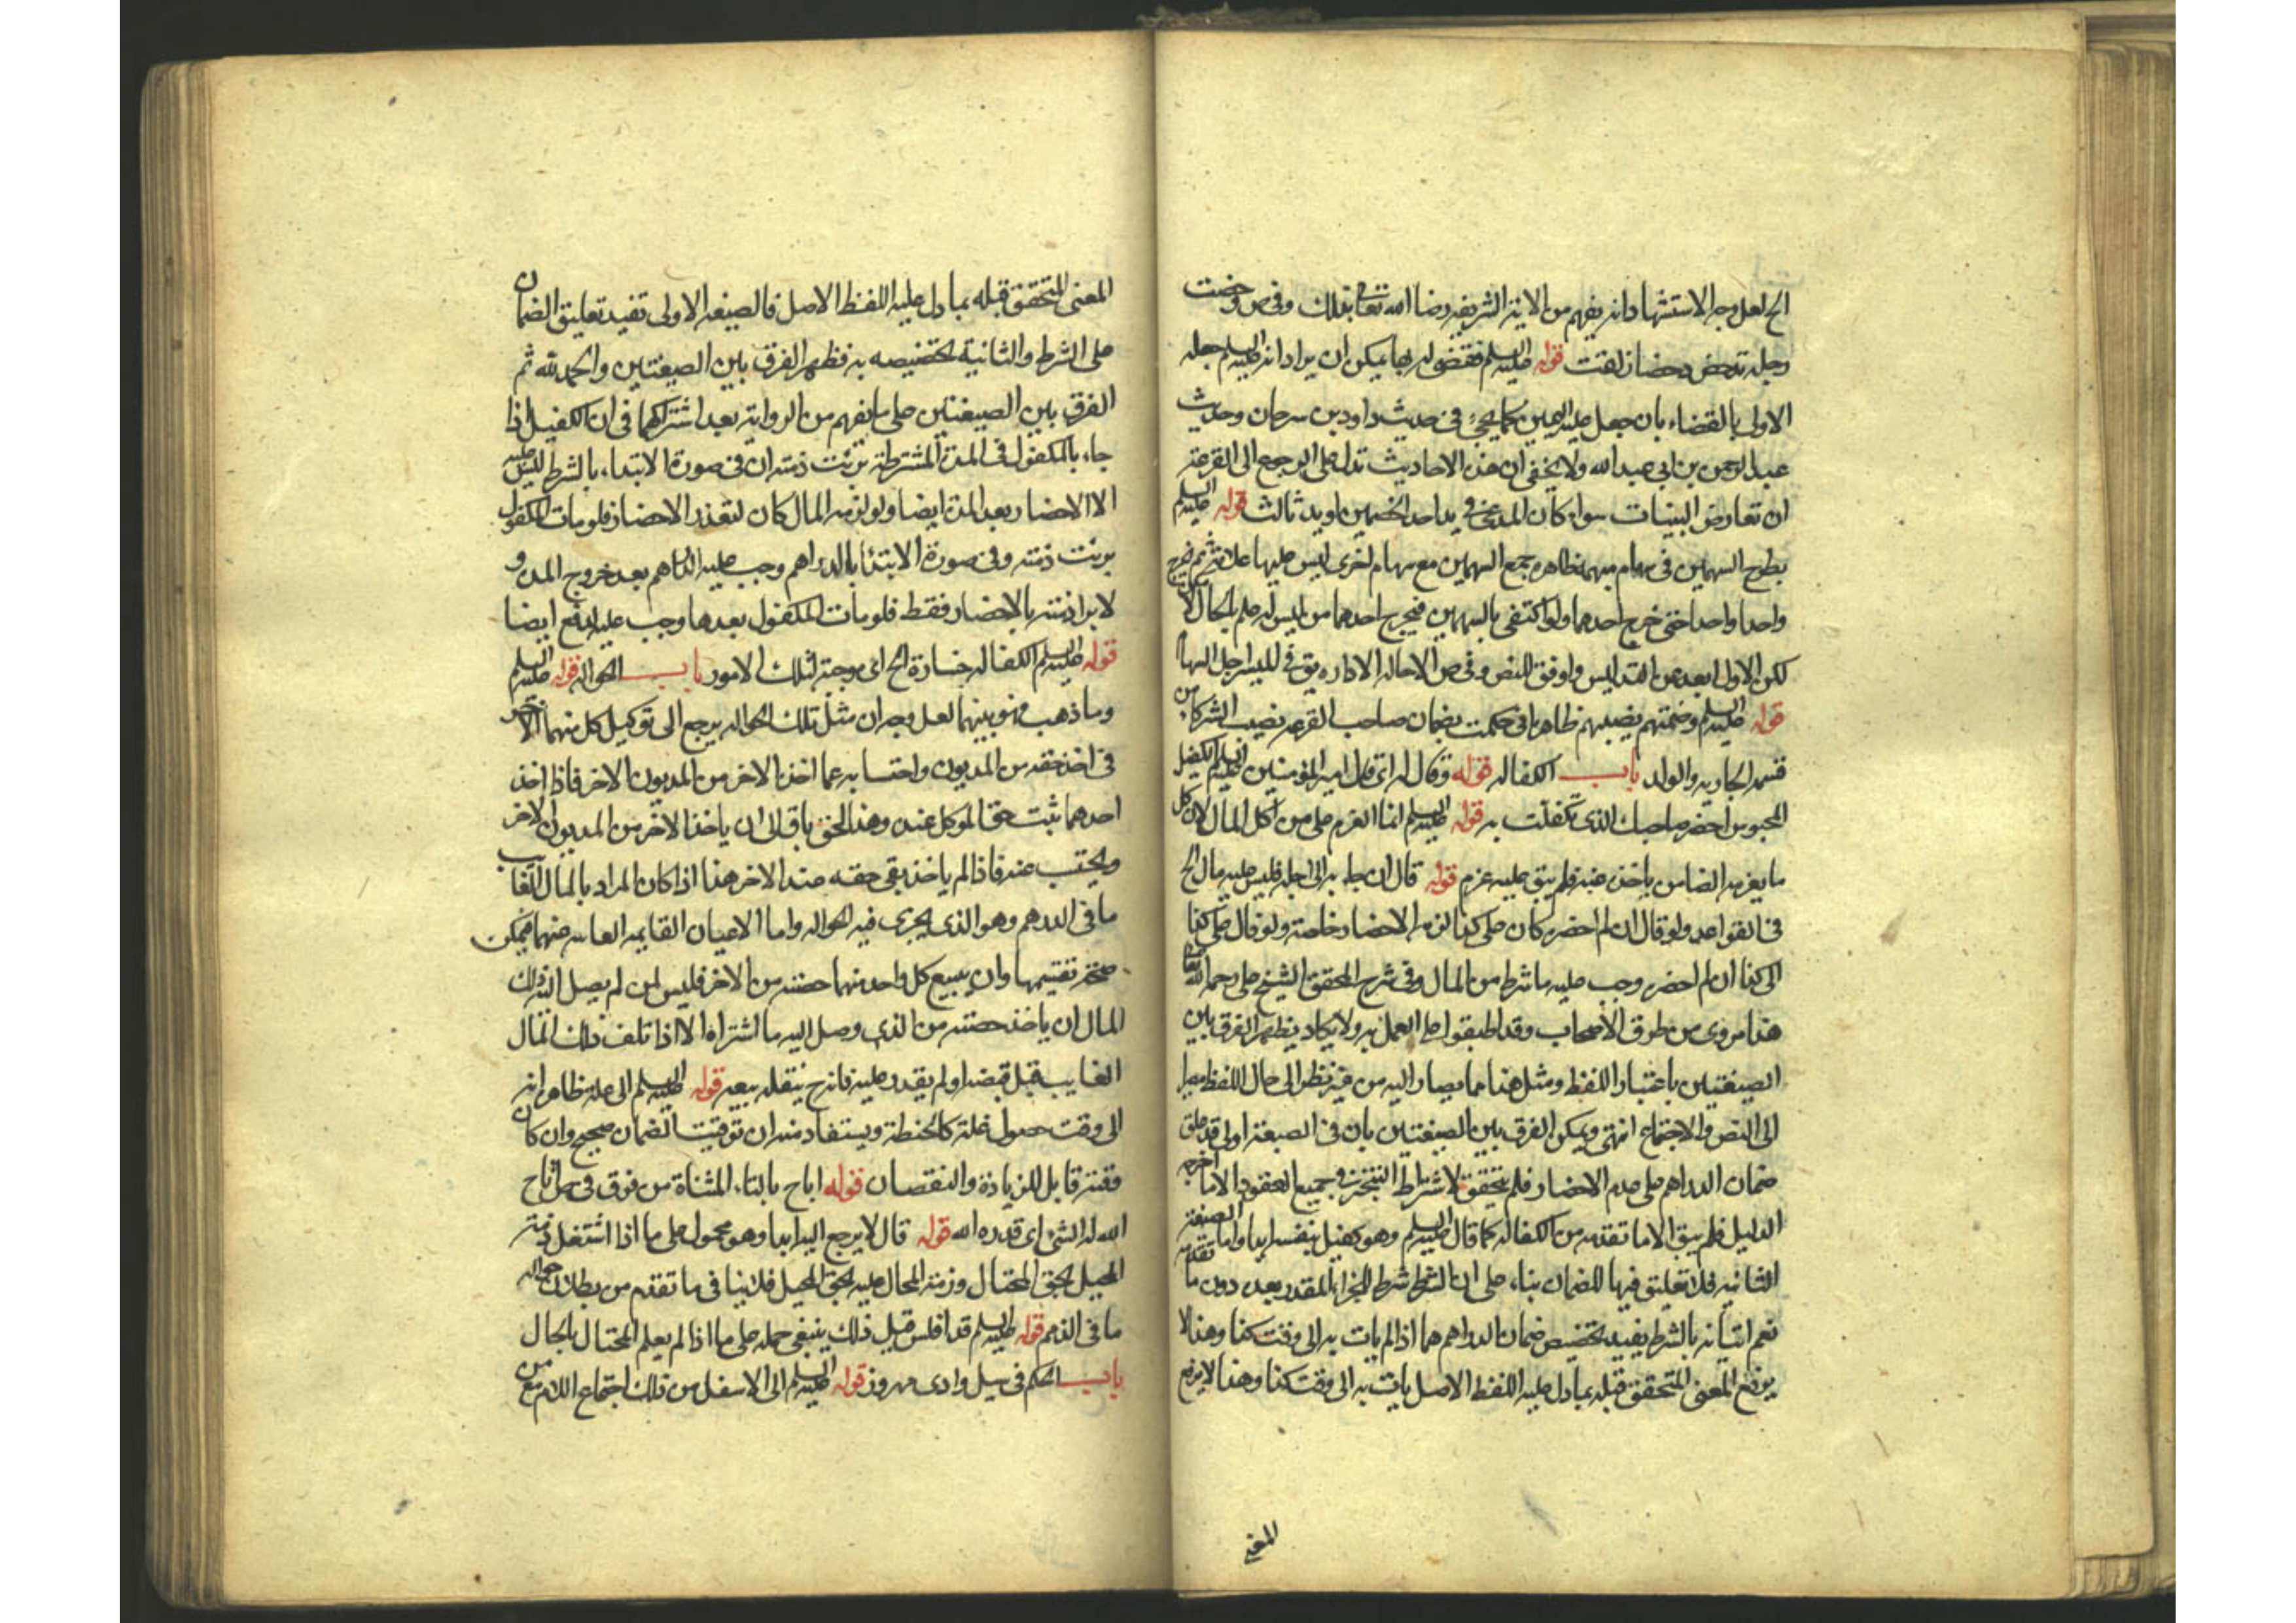 الخ لعل وجه الاستشهاد انه يفهم من الاية الشريفة رضا الله تعالى بذلك وفي ص وحضت
وجله تدحض دحضا زلقت قوله عليه السلم فقضى له بها يمكن ان يراد انه عليه السلم جعله
الاولى بالقضاء بان جعل عليه اليمين كما يجيء في حديث داود بن سرحان وحديث
عبد الرحمن بن ابي عبد الله ولا يخفى ان هذه الاحاديث تدل على الرجوع الى القرعة
ان تعارض البينات سواء كان المدعى في يد احد الخصمين او يد ثالث قوله عليه السلم
بطرح السهمين في سهام مبهمة ظاهره جمع السهمين مع سهام اخرى ليس عليها علامة ثم يخرج
واحدا واحدا حتى خرج احدهما ولو اكتفى بالسهمين فيخرج احدهما من ليس له علم بالحال
لكن الاول ابعد من التدليس واوفق للنص وفي ص الاحالة الادارة يق في الميسر اجل السهام
قوله عليه السلم وضمنتهم نصيبهم ظاهره اني حكمت بضمان صاحب القرعة نصيب الشركاء من
قسمة الجارية والولد باب الكفالة قوله وقال له اي قال امير المؤمنين عليه السلم للكفيل
المحبوس احضر صاحبك الذي تكفلت به قوله عليه السلم انما الغرم على من اكل المال لان كل
ما يغرمه الضامن ياخذ عنه فلم يبق عليه غرم قوله قال ان جاء به الى اجله فليس عليه مال الخ
في القواعد ولو قال ان لم احضره كان على كذا لزمه الاحضار خاصة ولو قال على كذا
الى كذا ان لم احضره وجب عليه ما شرط من المال وفي شرح المحقق الشيخ علي رحمه الله تعالى
هذا مروي من طرق الأصحاب وقد اطبقوا على العمل به ولا يكاد يظهر الفرق بين
الصيغتين باعتبار اللفظ ومثل هذا مما يصار اليه من غير نظر الى حال اللفظ مصيرا
الى النص والاجماع انتهى ويمكن الفرق بين الصيغتين بان في الصيغة اولى قد علق
ضمان الدراهم على عدم الاحضار فلم يتحقق لاشتراط التنجيز في جميع العقود الا ما اخرجه
الدليل فلم يبق الا ما تقدمه من الكفالة كما قال عليه السلم وهو كفيل بنفسه ابدا واما الصيغة
الثانية فلا تعليق فيها للضمان بناء على ان الشرط شرط للجزاء المقدر بعده دون ما تقدمه
نعم اتيانه بالشرط يفيد تخصيص ضمان الدراهم هما اذا لم يات به الى وقت كذا وهذا لا
يرفع المعنى المتحقق قبله بما دل عليه اللفظ الاصل يات به الى وقت كذا وهذا لا يرفع
المعنى
المعنى المتحقق قبله بما دل عليه اللفظ الاصل فالصيغه الاولى تفيد تعليق الضمان
على الشرط والثانية تخصيصه به فظهر الفرق بين الصيغتين والحمد لله ثم
الفرق بين الصيغتين على ما يفهم من الرواية بعد اشتراكهما في ان الكفيل اذا
جاء بالمكفول في المدة المشترطة برئت ذمته ان في صورة الابتداء بالشرط ليس عليه
الا الاحضار بعد المدة ايضا ولو لزمه المال كان لتعذر الاحضار فلو مات المكفول
برئت ذمته وفي صورة الابتداء بالدراهم وجب عليه الدراهم بعد خروج المدة و
لا يبرا ذمته بالاحضار فقط فلو مات المكفول بعدها وجب عليه الدفع ايضا
قوله عليه السلم الكفالة خسارة الخ اي موجبة لتلك الامور باب الحوالة قوله عليه السلم
وما ذهب فهو بينهما لعل وجه ان مثل تلك الحوالة يرجع الى توكيل كل منهما الآخر
في اخذ حقه من المديون واحتسابه عما اخذ الاخر من المديون الاخر فاذا اخذ
احدهما ثبت حق الموكل عنده وهذا الحق باق الى ان ياخذ الاخر من المديون الاخر
ويحتسب عنه فاذا لم ياخذ بقى حقه عند الاخر هذا اذا كان المراد بالمال الغايب
ما في الذمم وهو الذي يجري فيه الحوالة واما الاعيان القايمة الغايبة عنهما فيمكن
صحة تقسيمها وان يبيع كل واحد منهما حصته من الاخر فليس لمن لم يصل اليه ذلك
المال ان ياخذ حصته من الذي وصل اليه ما اشتراه الا اذا تلف ذلك المال
الغايب قبل قبضه او لم يقدر عليه فانه ح ينتقل بيعه قوله عليه السلم الى غلة ظاهره انه
الى وقت حصول غلة كالحنطة ويستفاد منه ان توقيت الضمان صحيح وان كان
وقته قابل للزيادة والنقصان قوله اباح بالتاء المثناة من فوق في ص اتاح
الله له الشئ اى قدره الله قوله قال لا يرجع اليه ابدا وهو محمول على ما اذا اشتغل ذمة
المحيل بحق المحتال وذمة المحال عليه بحق المحيل فلا ينافي ما تقدم من بطلان حوالة
ما في الذمم قوله عليه السلم قد افلس قبل ذلك ينبغي حمله على ما اذا لم يعلم المحتال بالحال
باب الحكم في سيل وادى مهزور قوله عليه السلم الى الاسفل من ذلك اجتماع اللام مع من